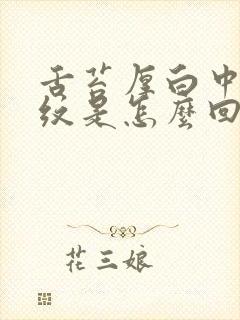 舌苔厚白中
纹是怎麼回
花三娘